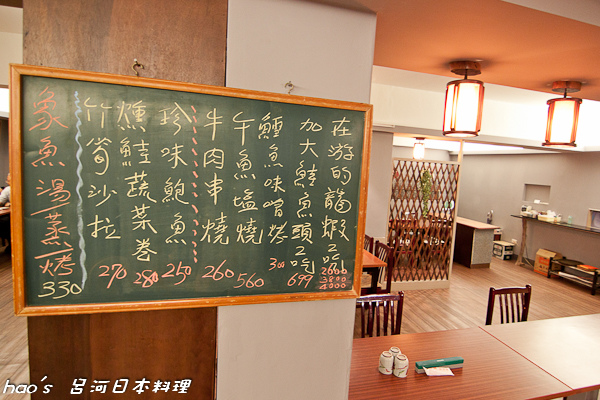 在游的龍蝦2吃
2600
3800
4000
加大鮭魚頭2吃
699
鱈魚味噌烤
300
午魚塩燒
560
牛肉串燒
260
珍味鮑魚
250
燻鮭蔬菜卷
280
竹筍沙拉
270
象魚湯蒸烤
330
hao's 呂河日本料理